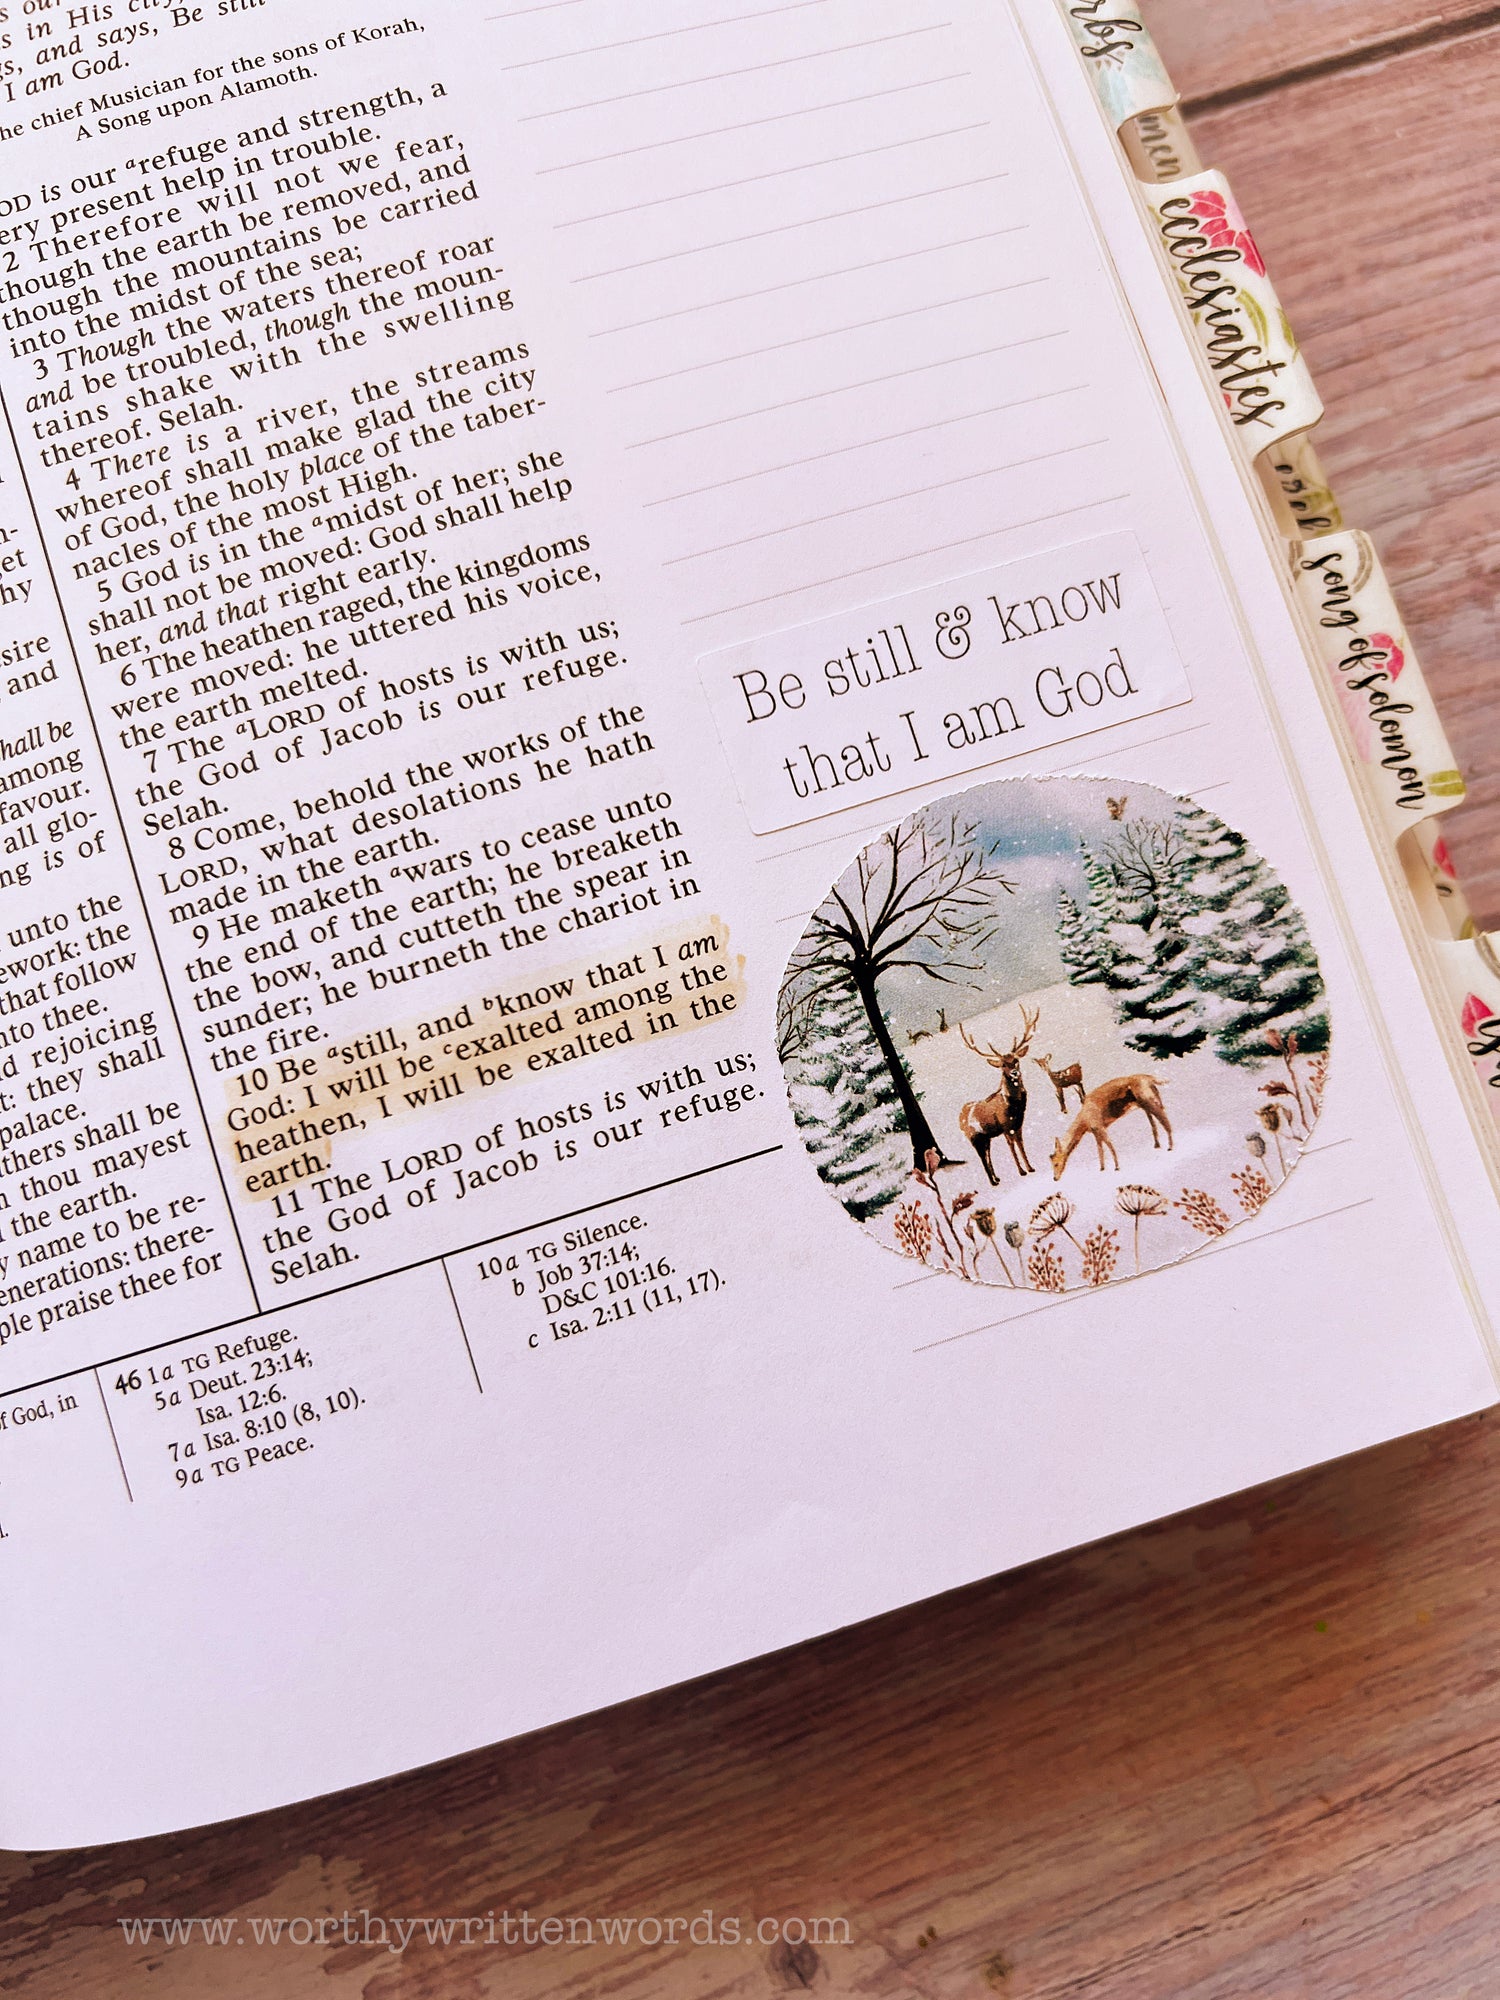 s in His city,
gs, and says, Be still
I am God.
chief Musician for the sons of Korah,
A Song upon Alamoth.
is our ᵃrefuge and strength, a
present help in trouble.
2 Therefore will not we fear,
though the earth be removed, and
though the mountains be carried
into the midst of the sea;
3 Though the waters thereof roar
and be troubled, though the moun-
tains shake with the swelling
thereof. Selah.
4 There is a river, the streams
whereof shall make glad the city
of God, the holy place of the taber-
nacles of the most High.
5 God is in the ᵃmidst of her; she
shall not be moved: God shall help
her, and that right early.
6 The heathen raged, the kingdoms
were moved: he uttered his voice,
the earth melted.
7 The ᵃLORD of hosts is with us;
the God of Jacob is our refuge.
Selah.
8 Come, behold the works of the
LORD, what desolations he hath
made in the earth.
9 He maketh ᵃwars to cease unto
the end of the earth; he breaketh
the bow, and cutteth the spear in
sunder; he burneth the chariot in
the fire.
10 Be ᵃstill, and ᵇknow that I am
God: I will be ᶜexalted among the
heathen, I will be exalted in the
earth.
11 The LORD of hosts is with us;
the God of Jacob is our refuge.
Selah.
and
shall be
among
favour.
all glo-
ng is of
unto the
ework: the
that follow
nto thee.
d rejoicing
t: they shall
palace.
thers shall be
thou mayest
the earth.
name to be re-
enerations: there-
ple praise thee for
of God, in
46 1a TG Refuge.
5a Deut. 23:14;
Isa. 12:6.
7a Isa. 8:10 (8, 10).
9a TG Peace.
10a TG Silence.
b Job 37:14;
D&C 101:16.
c Isa. 2:11 (11, 17).
Be still & know
that I am God
rbs
men
ecclesiastes
song of solomon
www.worthywrittenwords.com